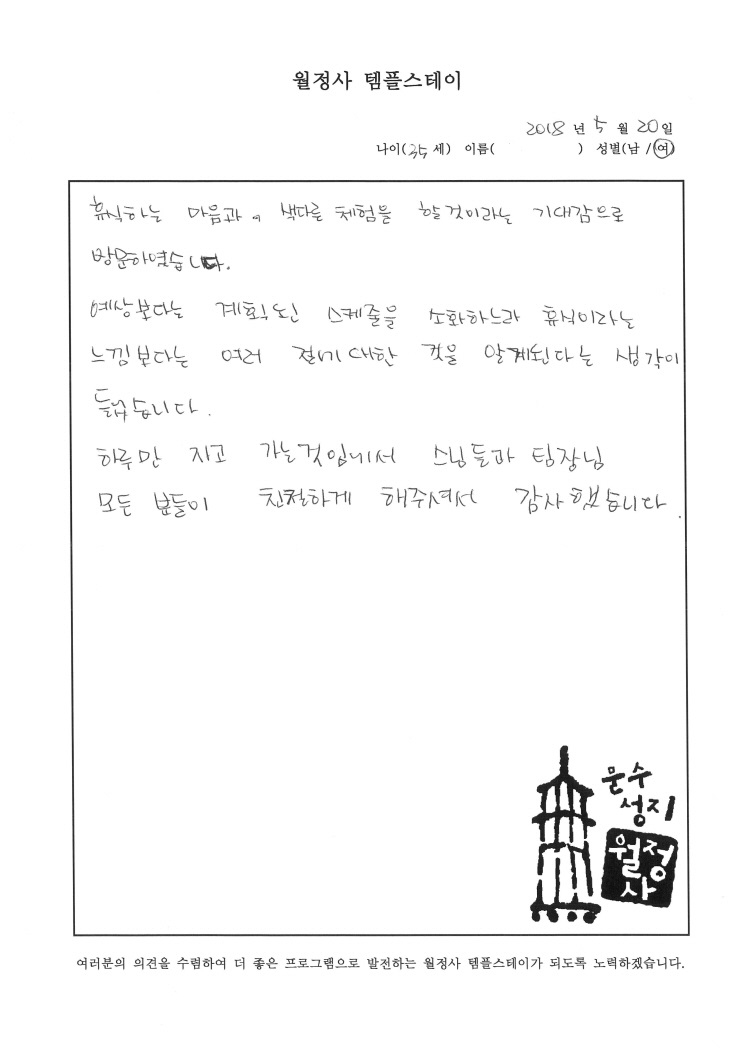 월정사 템플스테이
2018 년 5 월 20 일
나이(35 세) 이름( ) 성별(남 /여)
휴식하는 마음과 색다른 체험을 할것이라는 기대감으로
방문하였습니다.
예상보다는 계획된 스케줄을 소화하느라 휴식이라는
느낌보다는 여러 절에대한 것을 알게된다는 생각이
들었습니다.
하루만 자고 가는것임에서 스님들과 팀장님
모든 분들이 친절하게 해주셔서 감사했습니다.
문수
성지
월정
사
여러분의 의견을 수렴하여 더 좋은 프로그램으로 발전하는 월정사 템플스테이가 되도록 노력하겠습니다.